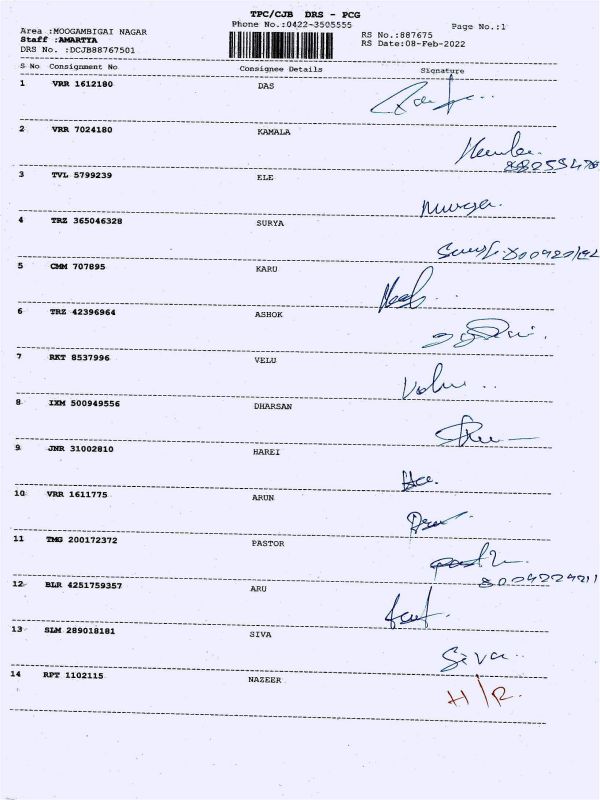 TPC/CJB DRS - PCG
Phone No.:0422-3505555
Page No.:1
Area :MOOGAMBIGAI NAGAR
Staff :AMARTYA
DRS No. :DCJB88767501
RS No.:887675
RS Date:08-Feb-2022
S No Consignment No Consignee Details Signature
1 VRR 1612180 DAS
2 VRR 7024180 KAMALA
3 TVL 5799239 ELE
Muruga.
4 TRZ 365046328 SURYA
5 CMM 707895 KARU
6 TRZ 42396964 ASHOK
7 RKT 8537996 VELU
8 IXM 500949556 DHARSAN
9 JNR 31002810 HAREI
10 VRR 1611775 ARUN
11 TMG 200172372 PASTOR
12 BLR 4251759357 ARU
13 SLM 289018181 SIVA
Siva
14 RPT 1102115 NAZEER
H/R.